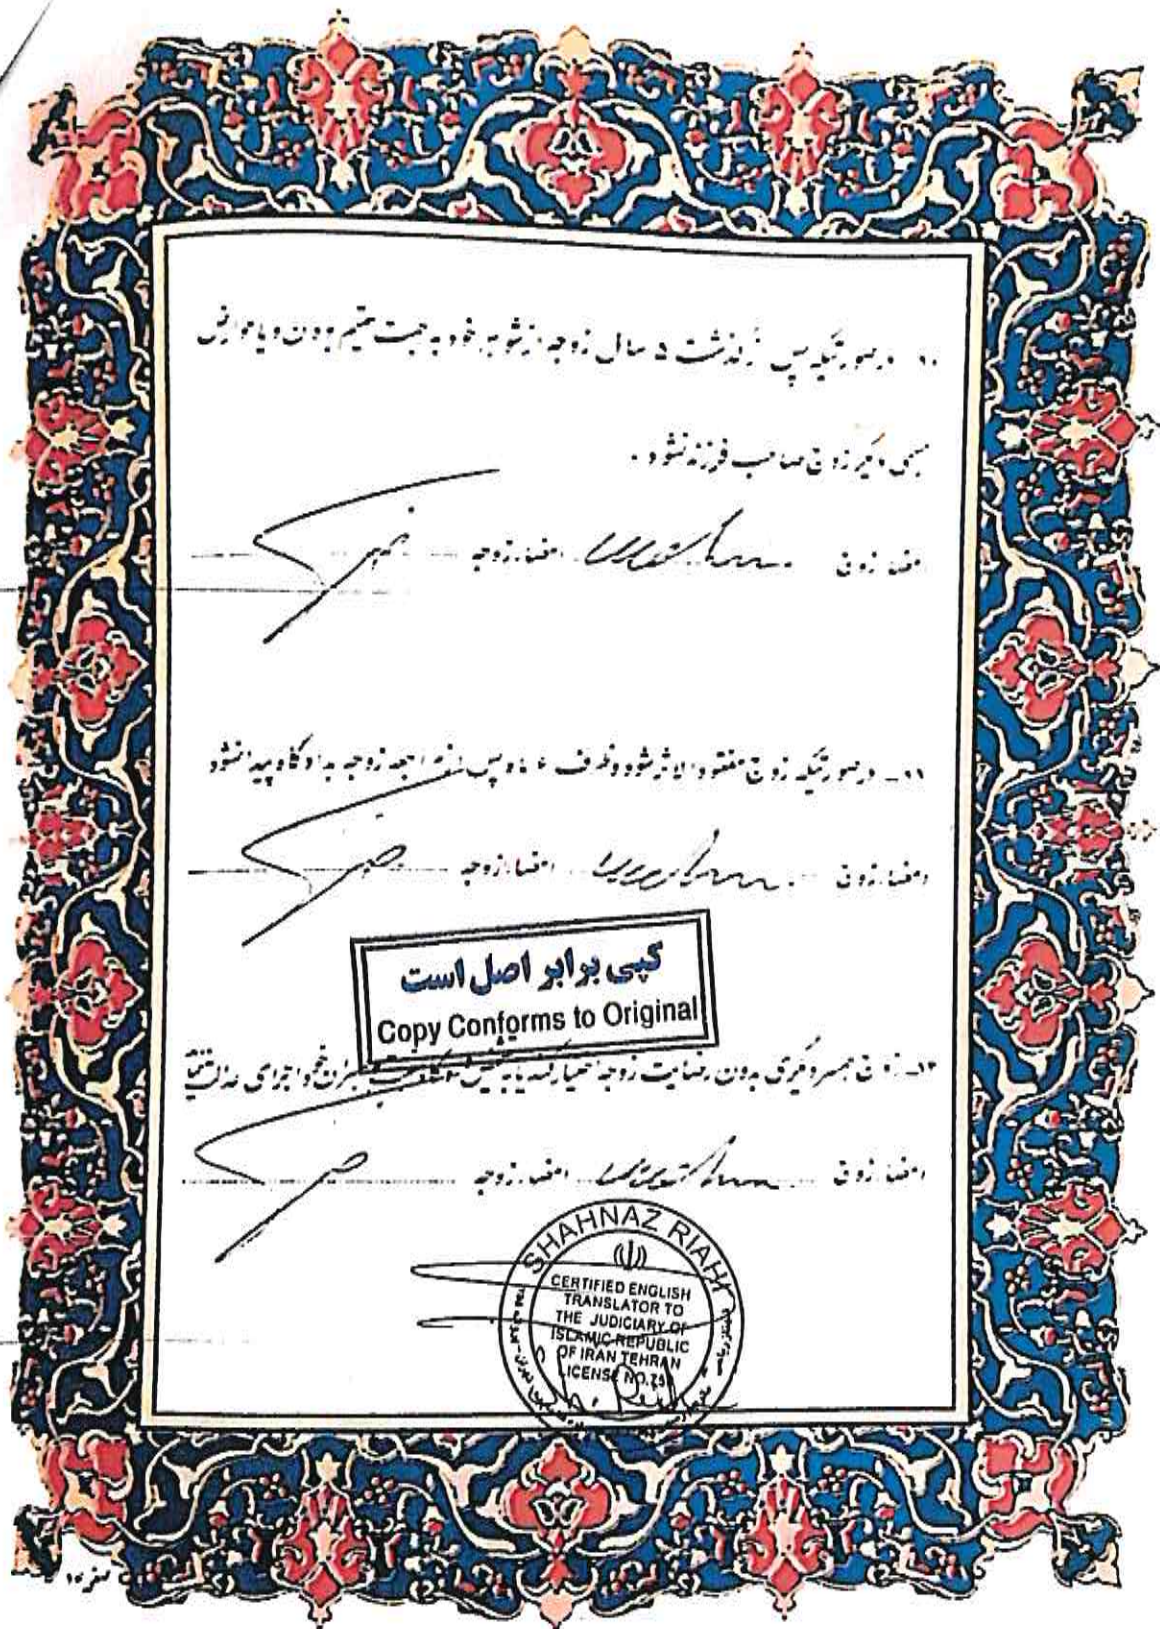 ۱۰- درصورتیکه پس از گذشت ۵ سال زوجه از شوهر خود به جهت عقیم بودن و یا عوارض
جسمی دیگر زوج صاحب فرزند نشود .
امضاء زوج امضاء زوجه
۱۱- درصورتیکه زوج مفقود الاثر شود و ظرف ۶ ماه پس از مراجعه زوجه به دادگاه پیدا نشود
امضاء زوج امضاء زوجه
کپی برابر اصل است
Copy Conforms to Original
۱۲- زوج همسر دیگری بدون رضایت زوجه اختیار کند یا به تشخیص دادگاه نسبت به همسران خود اجرای عدالت ننماید
امضاء زوج امضاء زوجه
SHAHNAZ RIAHI
CERTIFIED ENGLISH
TRANSLATOR TO
THE JUDICIARY OF
ISLAMIC REPUBLIC
OF IRAN TEHRAN
LICENSE NO.